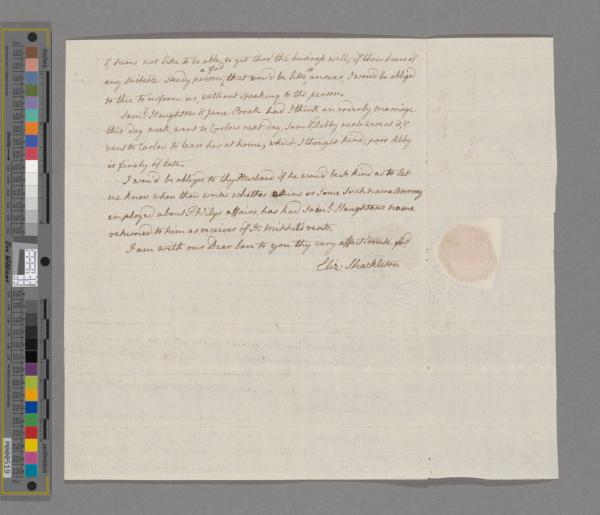 & seems not like to be able to get thro' the business well, if thou hears of
a god
any suitable steady person, that would be like to answer, I would be obliged
to thee to inform us, without speaking to the person.
Sam: Haughton & Jane Boak had I think an orderly marriage
this day week, went to Carlow next day, Sam & Debby
went to Carlow to leave her at home, which I thought kind, poor Abby
is finely of late.
I would be obliged to thy Husband if he would be so kind as to let
me know when thou writes whether or some such name Attorney
employed about affairs, has had Sam: Haughton's name
returned to him as receiver of H: rents.
I am with our Dear love to you thy very affectionate
Eliz: Shackleton
M000519